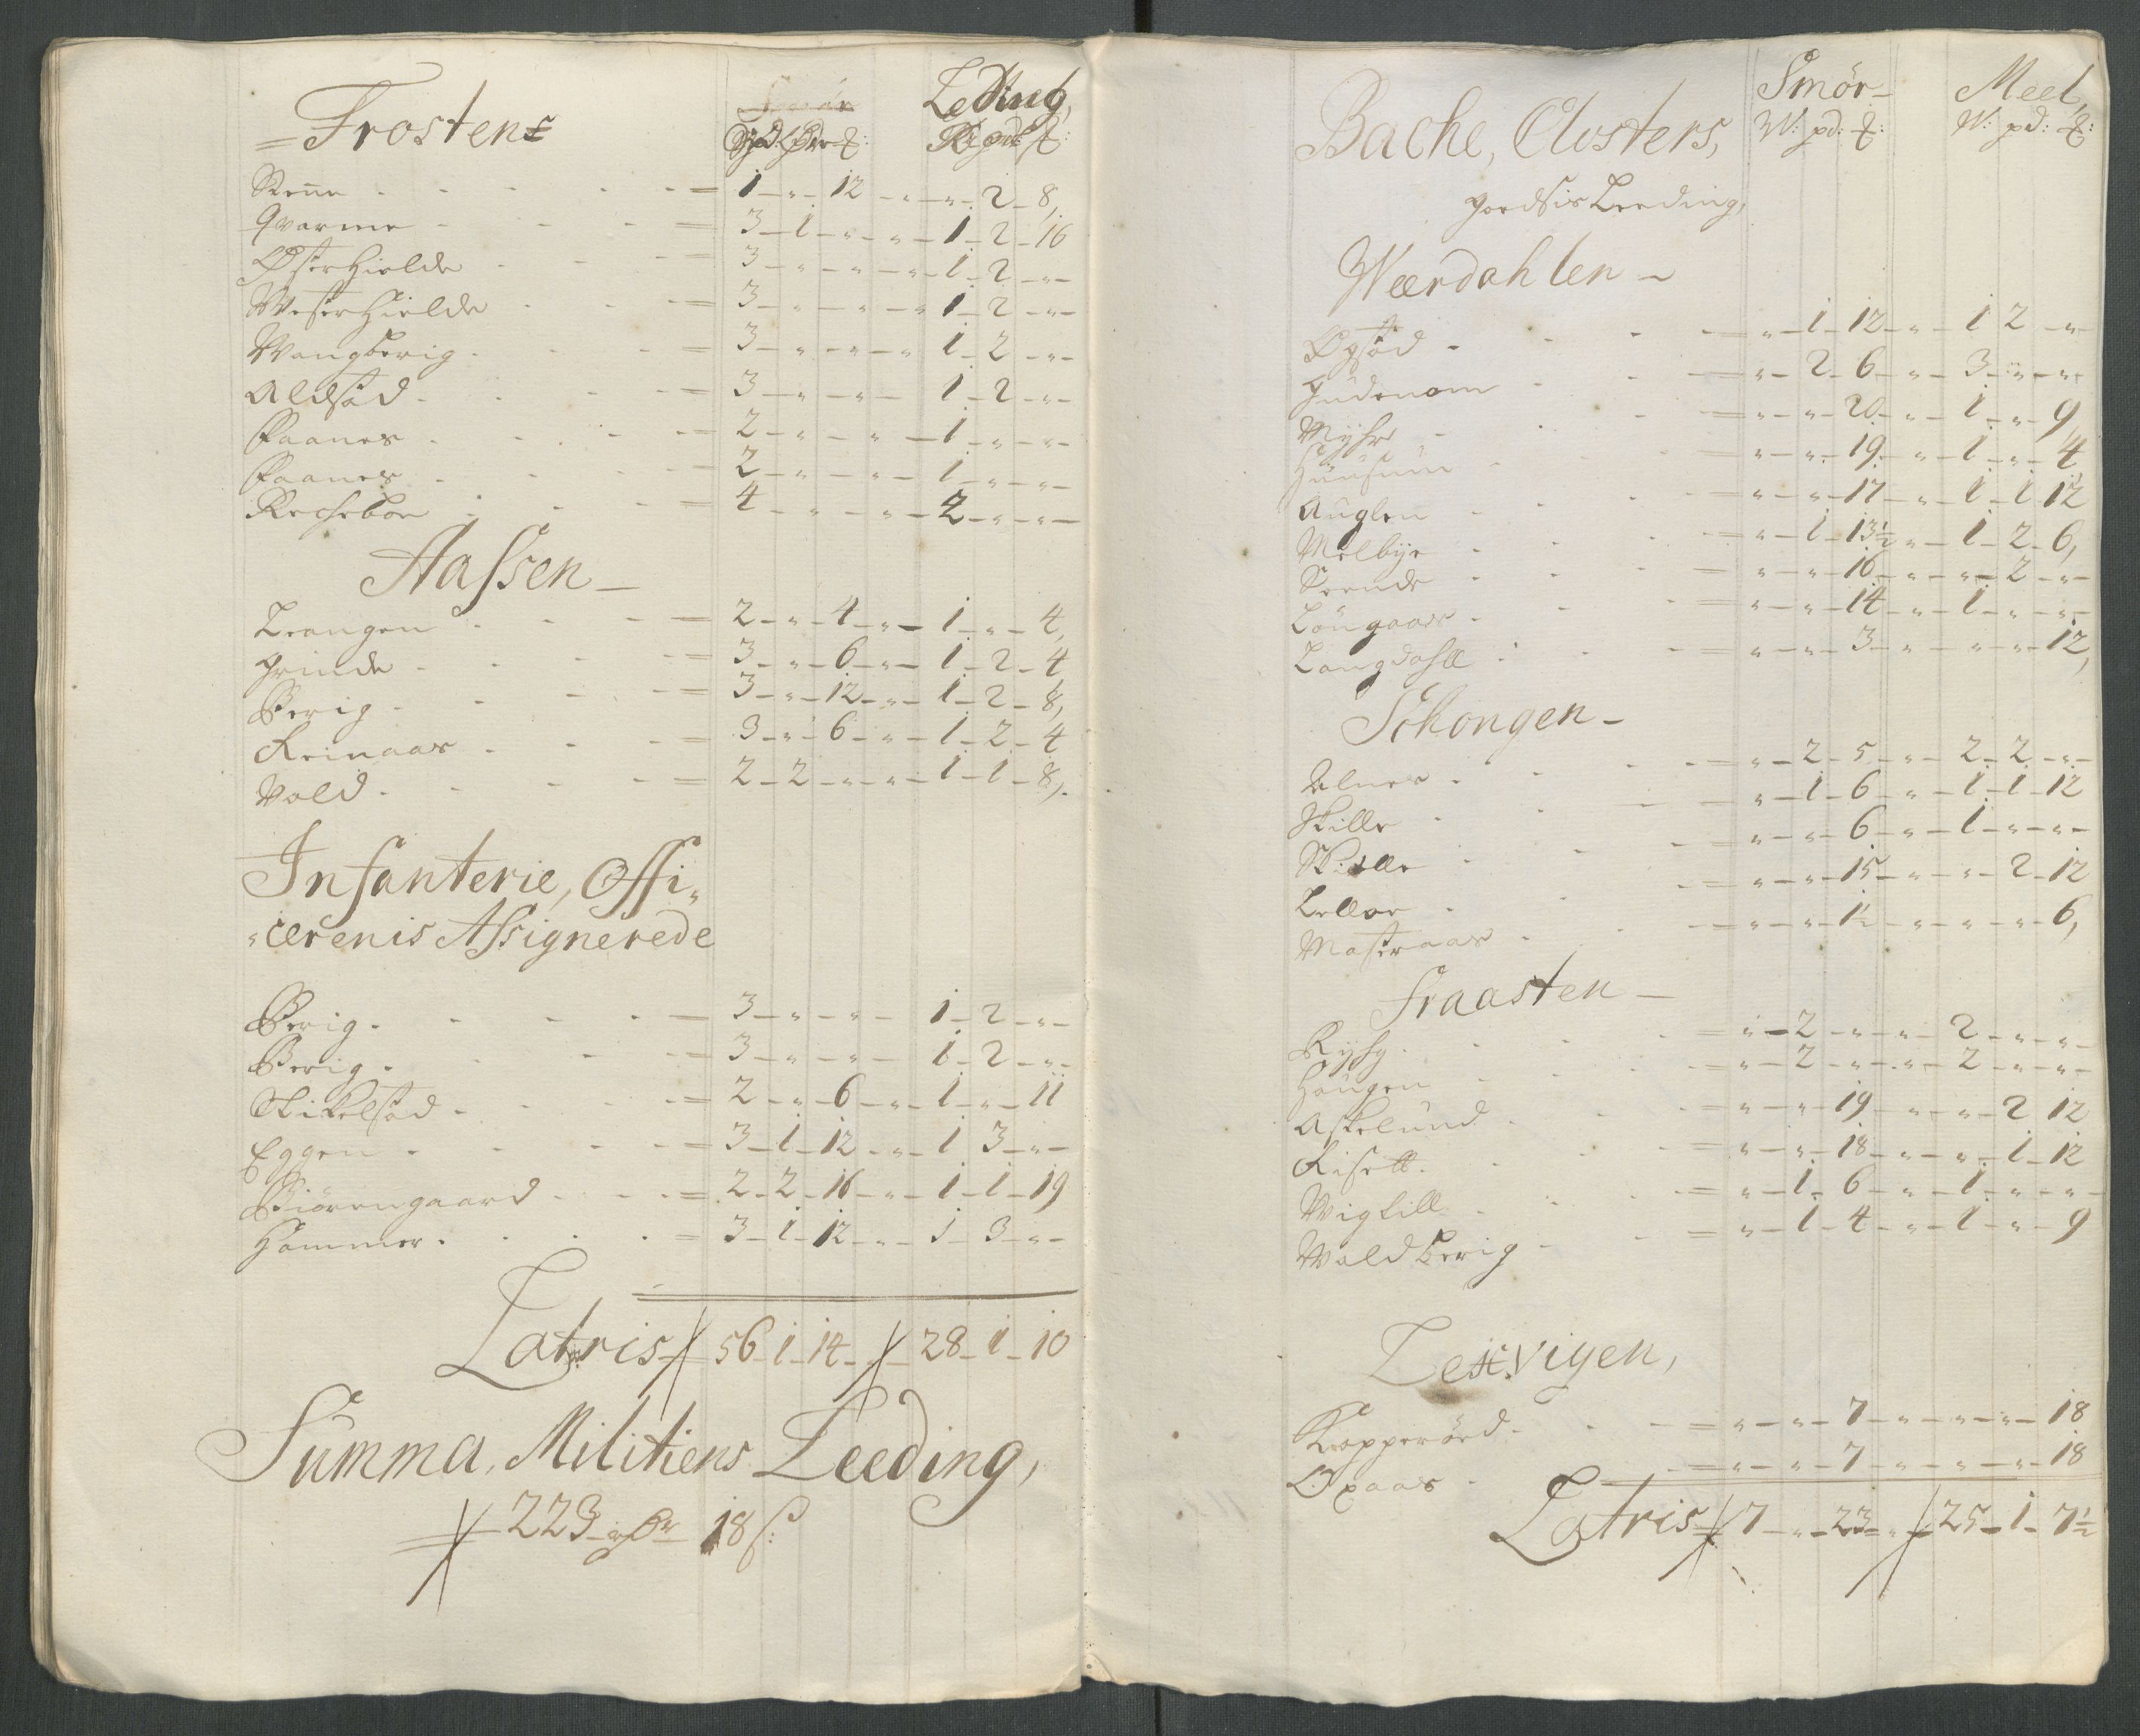 Frosten
Leding,
Renne - 1 - " - 12 - " - " - 2 - 8,
Qvarme - 3 - 1 - " - " - 1 - 2 - 16
Østerhielde - 3 - " - " - " - 1 - 2 - "
Westerhielde - 3 - " - " - " - 1 - 2 - "
Wangberig - 3 - " - " - " - 1 - 2 - "
Aldstad - 3 - " - " - 1 - 2 - "
Faanes - 2 - " - " - 1 - " - "
Faanes - 2 - " - " - 1 - " - "
Recheboe - 4 - " - " - 2 - " - "
Aassen -
Leangen - 2 - " - 4 - " - 1 - " - 4,
Grinde - 3 - " - 6 - " - 1 - 2 - 4
Berig - 3 - " - 12 - " - 1 - 2 - 8,
Reinaas - 3 - " - 6 - " - 1 - 2 - 4
Vold - 2 - 2 - " - " - 1 - 1 - 8,
Infanterie, Offi,,
,,cerenis Assignerede
Berig - 3 - " - " - 1 - 2 - "
Berig - 3 - " - " - 1 - 2 - "
Stikelstad - 2 - " - 6 - " - 1 - " - 11
Eggen - 3 - 1 - 12 - " - 1 3 - "
Biørengaard - 2 - 2 - 16 - " - 1 - 1 - 19
Hammer - 3 - 1 - 12 - " - 1 - 3 - "
Latris 56 - 1 - 14 - 28 - 1 - 10
Summa, Militiens Leeding,
223 - 18 ß:
Smør - Meel,
Bache, Closters, W: pd: ℔: W: pd: ℔:
Leeding,
Wærdahlen -
Øgstad - " - 1 - 12 - " - 1 2 - "
Gudenom - " - 2 - 6 - " - 3 - " - "
Myhr - " - " - 20 - " - 1 - " - 9
" - " - 19 - " - 1 - " - 4
Auglen - " - " - 17 - " - 1 - 1 12
Melbye - " - 1 - 13½ - " - 1 - 2 - 6,
Seende - " - " - 16 - " - " - 2 - "
" - " - 14 - " - 1 - " - "
Langdahll - " - " - 3 - " - " - " - 12,
Schongen -
- " - 2 - 5 - " - 2 - 2 - "
Skille - " - 1 - 6 - " - 1 - 1 - 12
Skille - " - " - 6 - " - 1 - " - "
- " - " - 15 - " - " - 2 - 12
- " - " - 1½ - " - " - " - 6,
Fraasten -
- " - 2 - " - " - 2 - " - "
Haugen - " - 2 - " - " - 2 - " - "
Askelund - " - " - 19 - " - " - 2 12
Risett - " - " - 18 - " - " - 1 - 12
- " - 1 - 6 - " - 1 - " - "
Waldberig - " - 1 - 4 - " - 1 - " - 9
Lexvigen,
- " - " - 7 - " - " - " - 18
Opaas - " - " - 7 - " - " - " - 18
Latris 7 - " - 23 - " - 25 - 1 - 7½